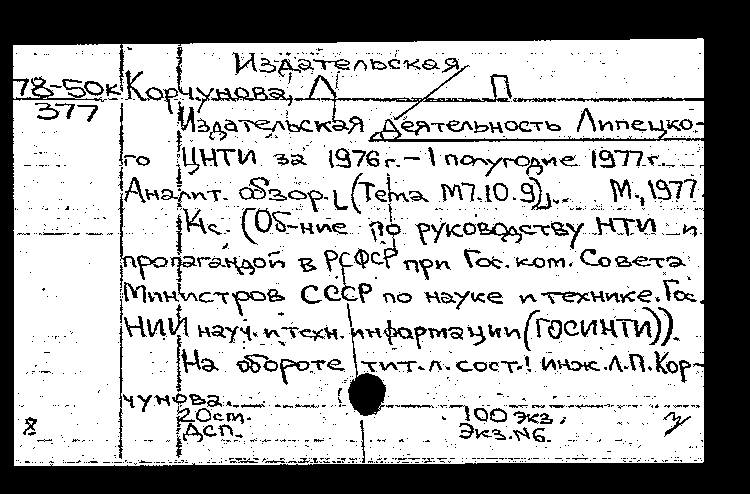 Издательская
78-50к Корчунова, Л П
377
Издательская деятельность Липецко-
го ЦНТИ за 1976г. – I полугодие 1977г.
Аналит. обзор. [(Тема М7.10.9)]. М., 1977.
(Об-ние по руководству НТИ и
пропагандой в РСФСР при Гос. ком. Совета
Министров СССР по науке и технике. Гос.
НИИ науч. и техн. информации (ГОСИНТИ)).
На обороте тит. л. сост.: инж. Л.П. Кор-
чунова.
20 ст. 100 экз.
8 ДСП. Экз. №6.